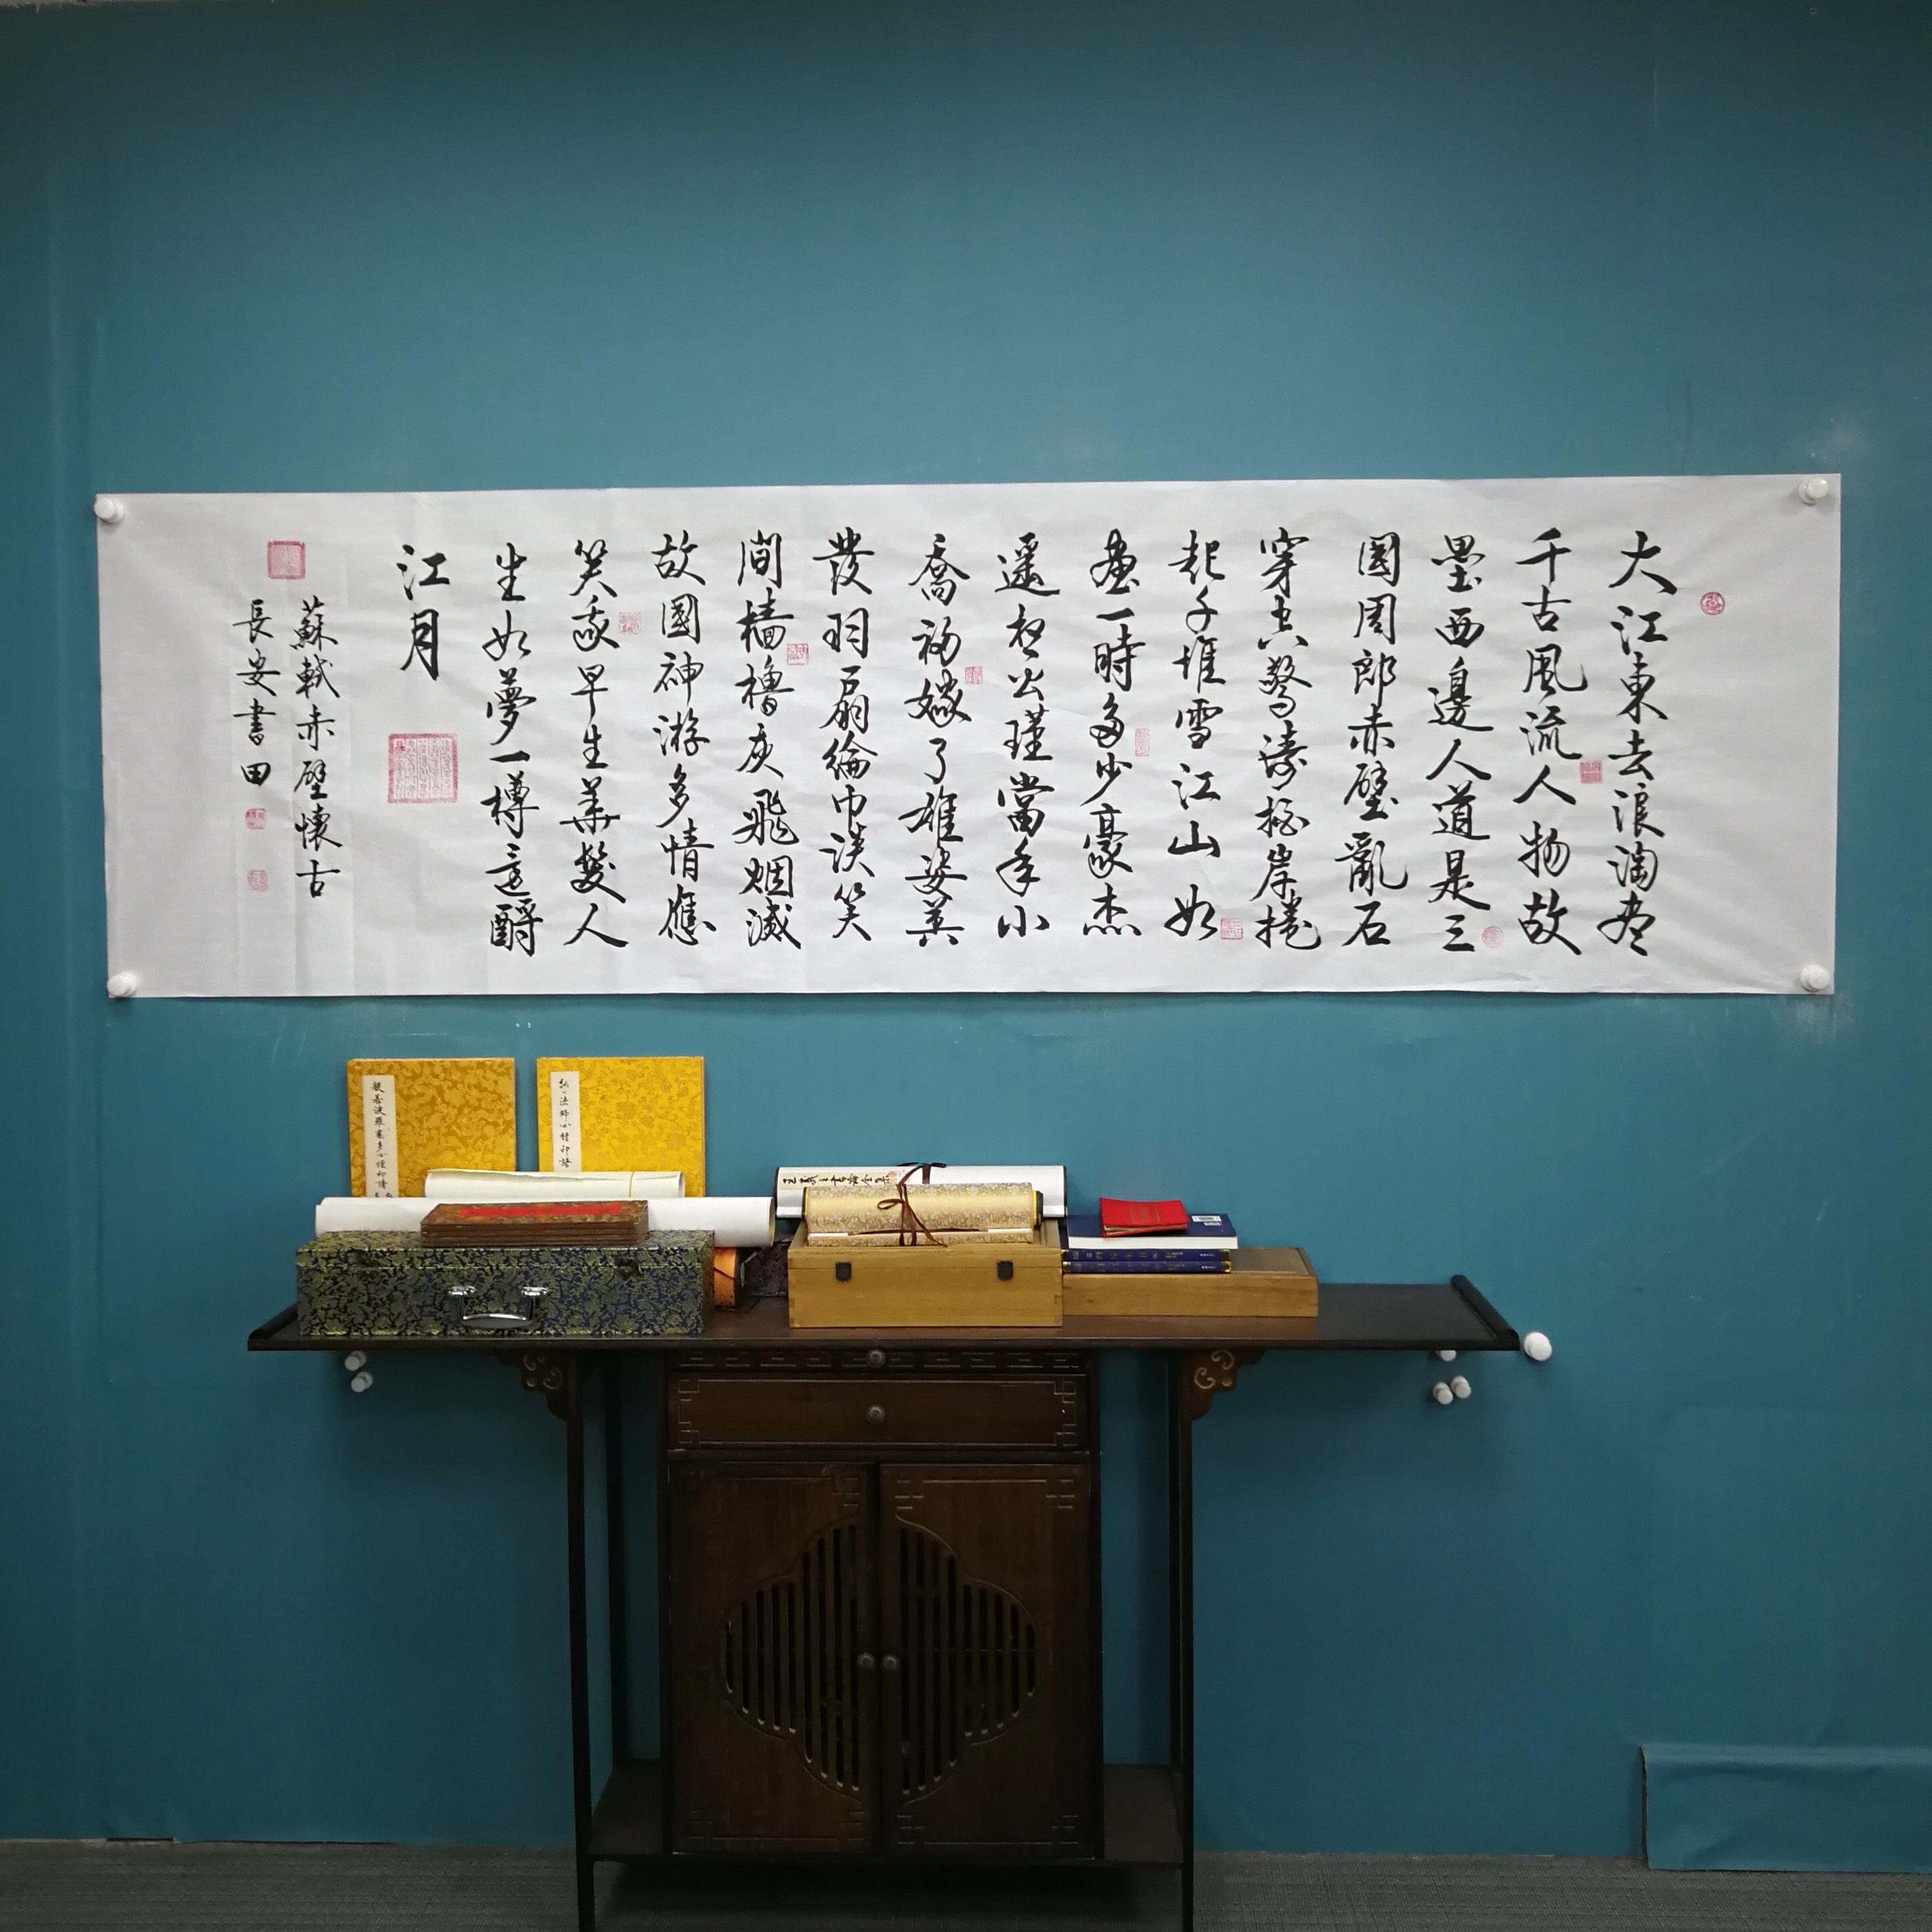 大江東去浪淘尽
千古風流人物故
壘西邊人道是三
國周郎赤壁亂石
穿空驚濤拍岸捲
起千堆雪江山如
畫一時多少豪杰
遥想公瑾當年小
喬初嫁了雄姿英
發羽扇綸巾談笑
間檣櫓灰飛烟滅
故國神游多情應
笑我早生華髮人
生如夢一樽還酹
江月
蘇軾赤壁懷古
長安書田
般若波羅蜜多心經印譜
弘一法師心經印譜